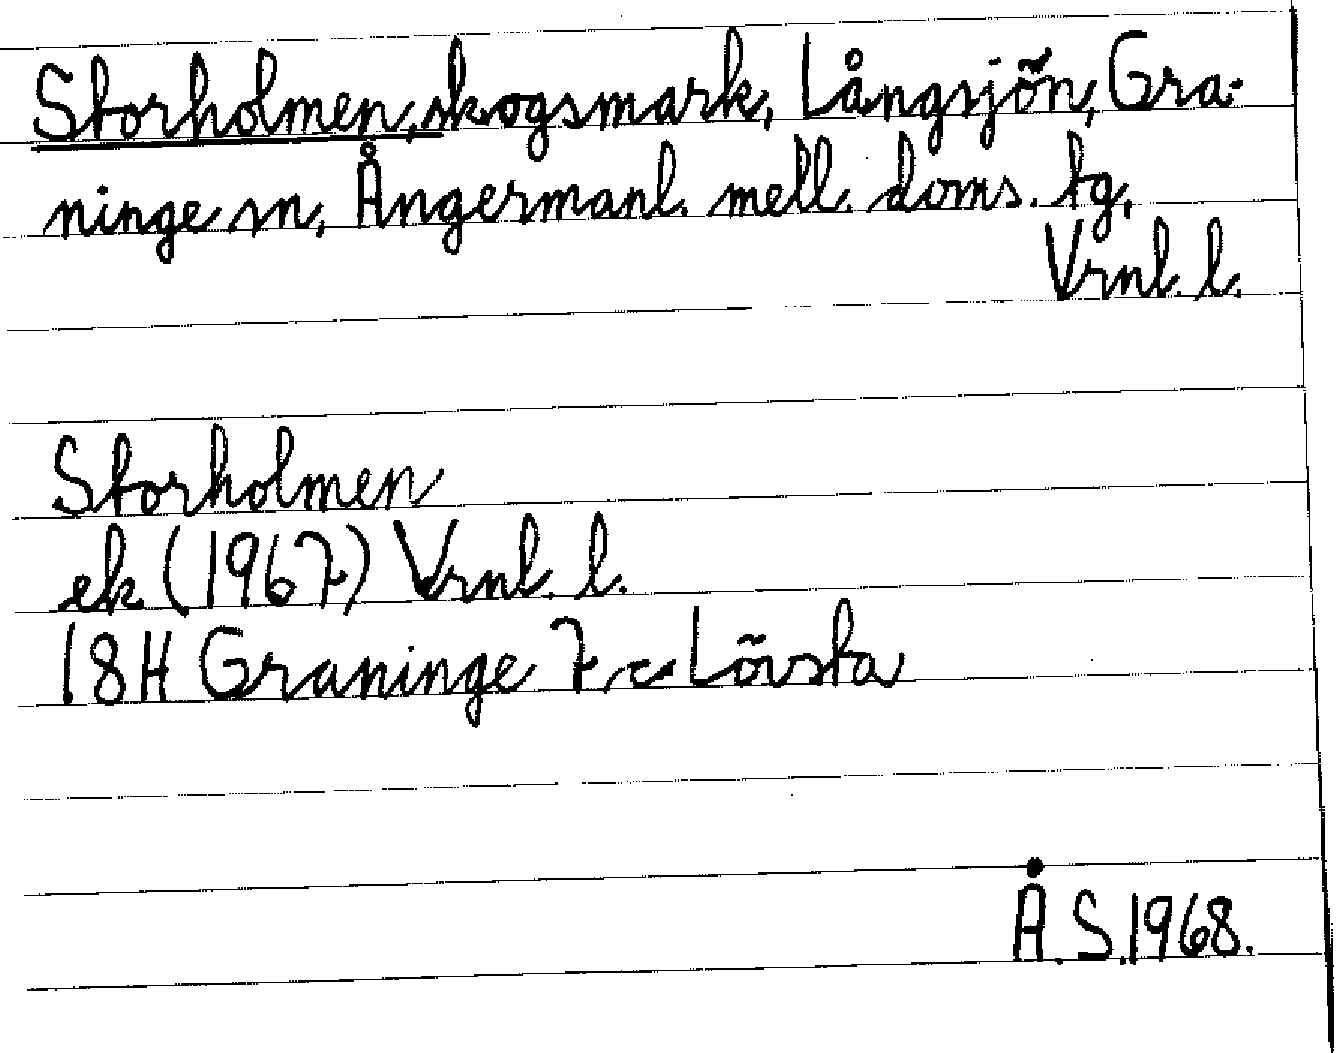 Storholmen, skogsmark, Långsjön, Gra-
ninge sn, Ångermanl. mell. doms. tg,
Vrnl. l.
Storholmen
ek (1967) Vrnl. l.
18H Graninge 7 c Lövsta
Å.S.1968.